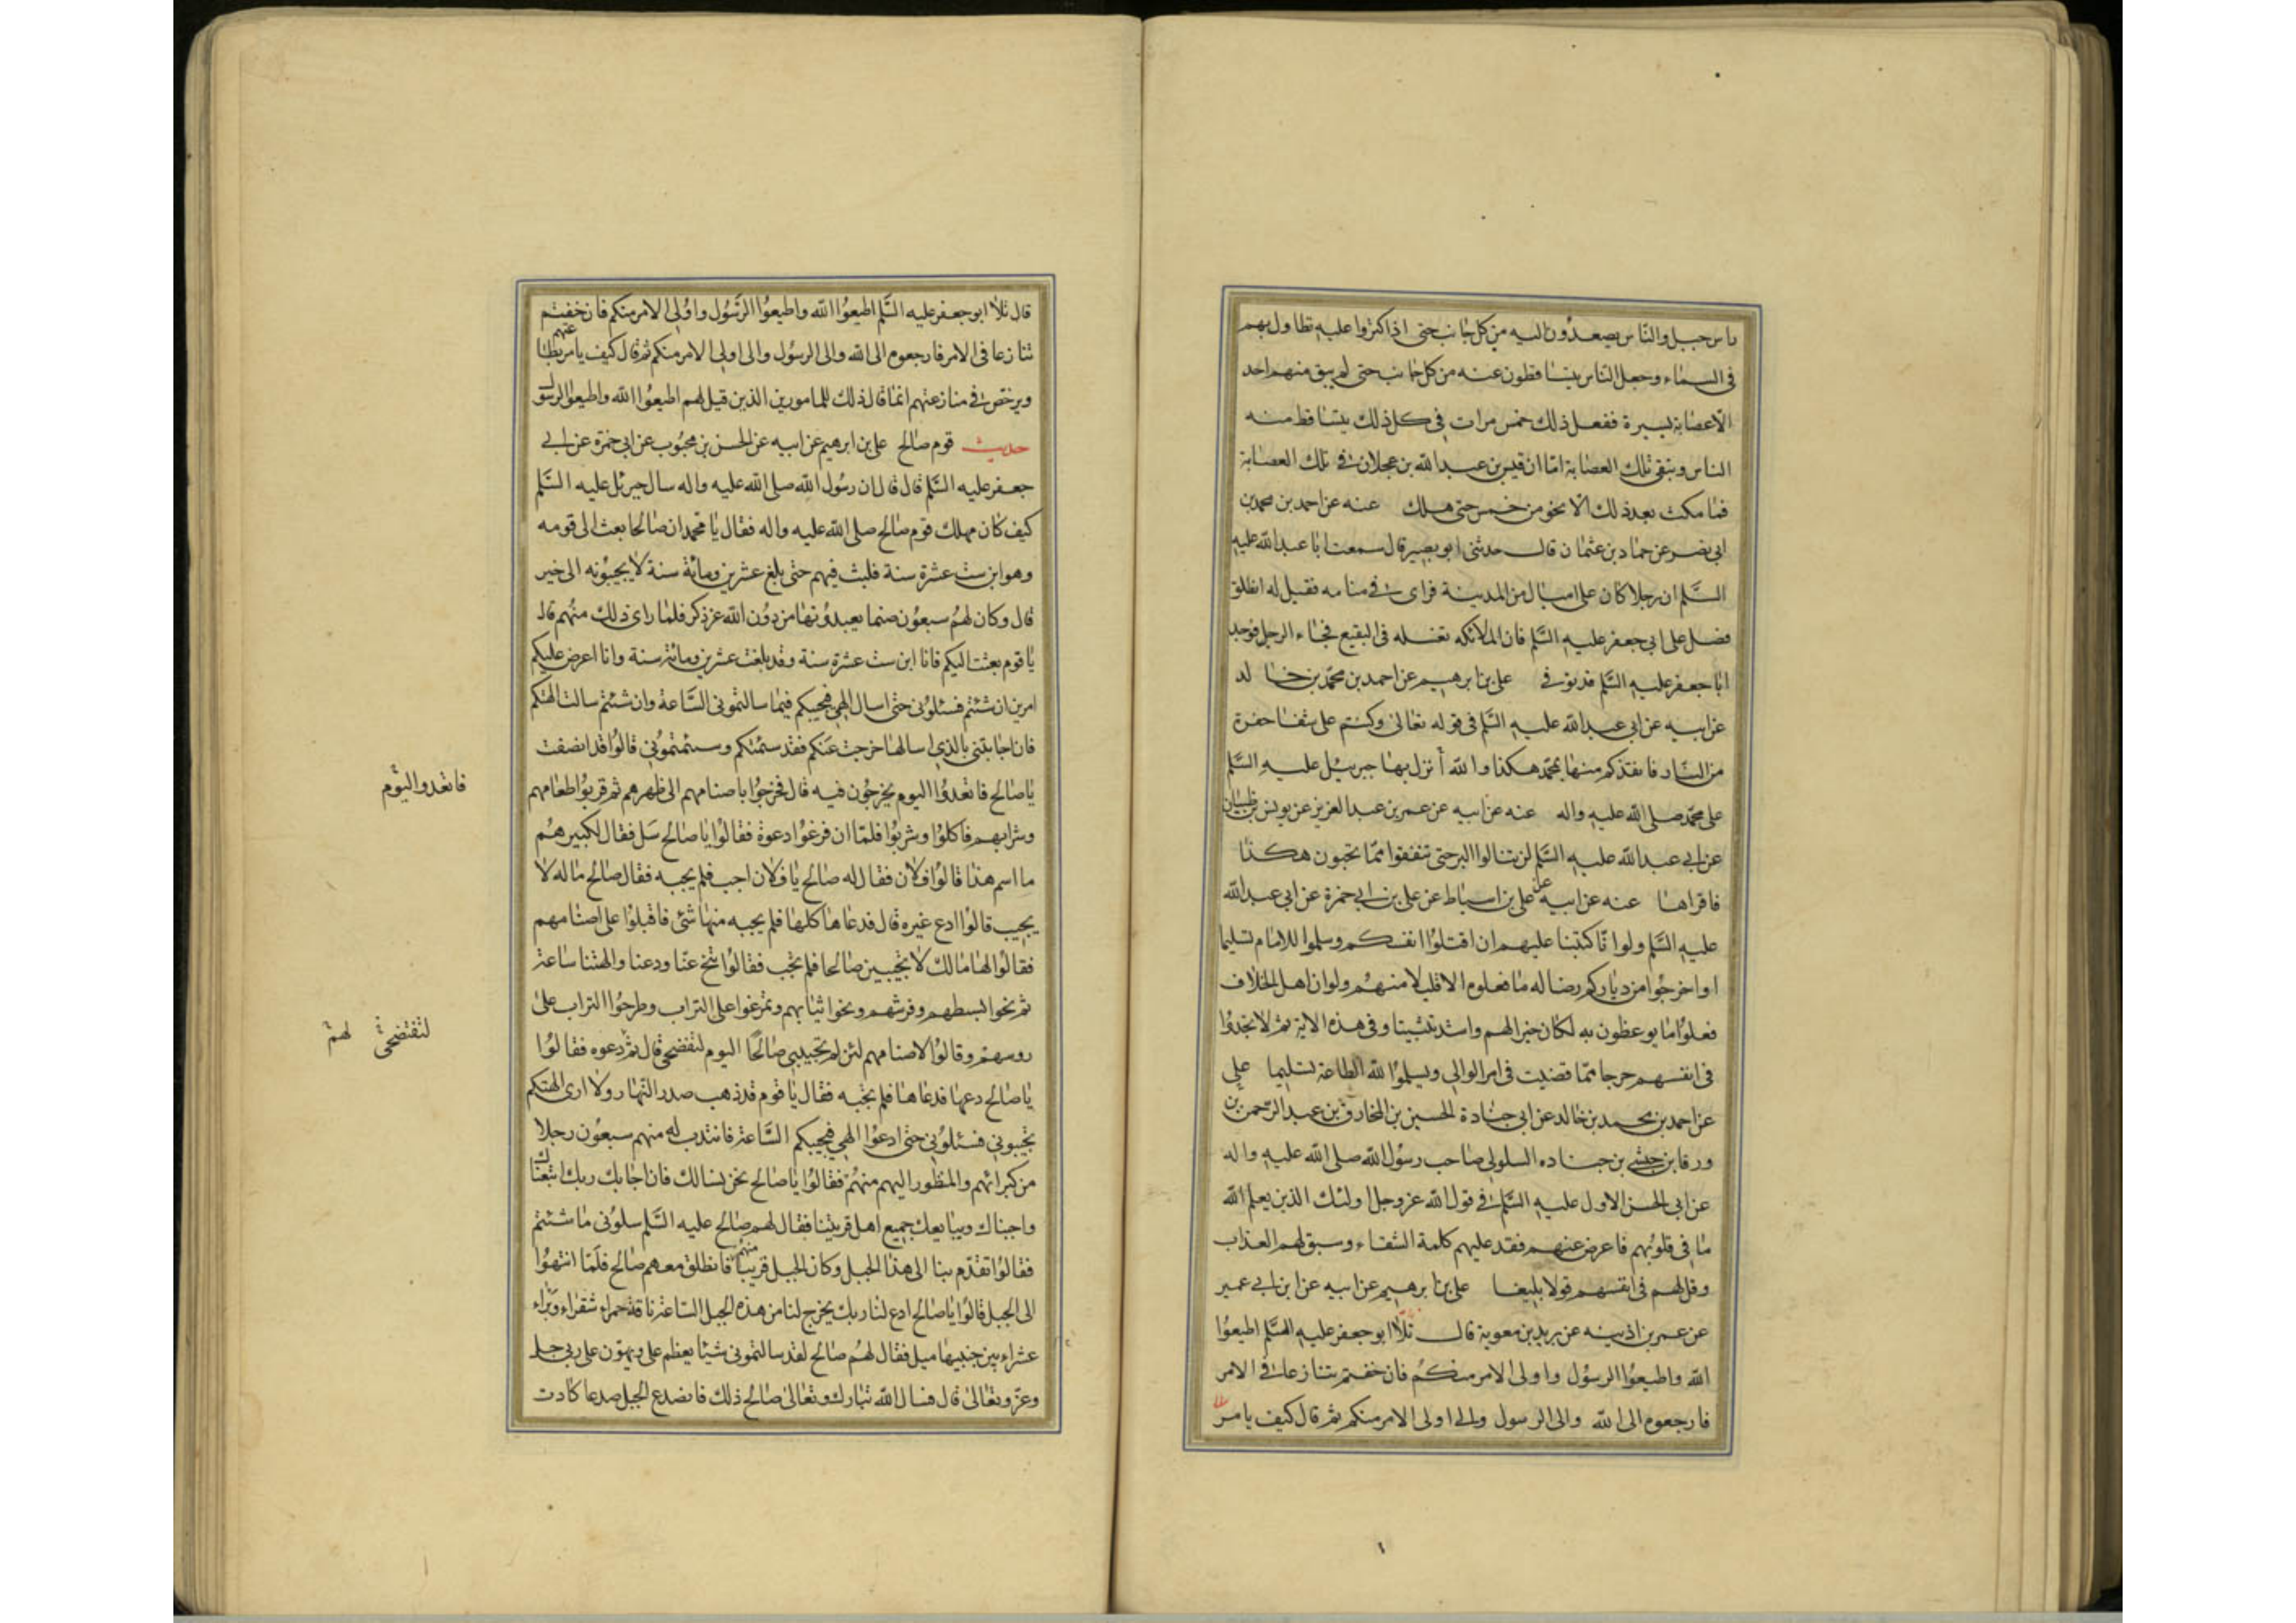 راس جبل والناس يصعدون اليه من كل جانب حتى اذا كثروا عليه تطاول بهم
فى السماء وجعل الناس يتساقطون عنه من كل جانب حتى لم يبق منهم احد
الا عصابة يسيرة ففعل ذلك خمس مرات فى كل ذلك يتساقط منه
الناس ويبقى تلك العصابة اما ان قيس بن عبد الله بن عجلان فى تلك العصابة
فما مكث بعد ذلك الا نحو من خمس حتى هلك عنه عن احمد بن محمد بن
ابى نصر عن حماد بن عثمان قال حدثنى ابو بصير قال سمعت ابا عبد الله عليه
السلم ان رجلا كان على اميال من المدينة فراى فى منامه فقيل له انطلق
فصل على ابى جعفر عليه السلم فان الملائكه تغسله فى البقيع فجاء الرجل فوجد
ابا جعفر عليه السلم قد توفى على بن ابرهيم عن احمد بن محمد بن خالد
عن ابيه عن ابى عبد الله عليه السلم فى قوله تعالى وكنتم على شفا حفرة
من النار فانقذكم منها بمحمد هكذا والله أنزل بها جبرئيل عليه السلم
على محمد صلى الله عليه واله عنه عن ابيه عن عمر بن عبد العزيز عن يونس بن ظبيان
عن ابى عبد الله عليه السلم لن تنالوا البر حتى تنفقوا مما تحبون هكذا
فاقراها عنه عن ابيه عن على بن اسباط عن على بن ابى حمزة عن ابى عبد الله
عليه السلم ولو انا كتبنا عليهم ان اقتلوا انفسكم وسلموا للامام تسليما
او اخرجوا من دياركم رضا له ما فعلوه الا قليلا منهم ولو ان اهل الخلاف
فعلوا ما يوعظون به لكان خيرا لهم واشد تثبيتا وفى هذه الاية ثم لا يجدوا
فى انفسهم حرجا مما قضيت فى امر الوالى ويسلموا لله الطاعة تسليما على
عن احمد بن محمد بن خالد عن ابى جنادة الحسين بن المخارق بن عبد الرحمن بن
ورقا بن حبشى بن جناده السلولى صاحب رسول الله صلى الله عليه واله
عن ابى الحسن الاول عليه السلم فى قول الله عز وجل اولئك الذين يعلم الله
ما فى قلوبهم فاعرض عنهم فقد عليهم كلمة الشقاء وسبق لهم العذاب
وقل لهم فى انفسهم قولا بليغا على بن ابرهيم عن ابيه عن ابن ابى عمير
عن عمر بن اذينه عن بريد بن معوية قال تلا ابو جعفر عليه السلم اطيعوا
الله واطيعوا الرسول واولى الامر منكم فان خفتم تنازعا فى الامر
فارجعوه الى الله والى الرسول والى اولى الامر منكم ثم قال كيف يامر
قال تلا ابو جعفر عليه السلم اطيعوا الله واطيعوا الرسول واولى الامر منكم فان خفتم
تنازعا فى الامر فارجعوه الى الله والى الرسول والى اولى الامر منكم ثم قال كيف يامر
ويرخص فى منازعتهم انما قال ذلك للمامورين الذين قيل لهم اطيعوا الله واطيعوا الرسول
حديث قوم صالح على بن ابرهيم عن ابيه عن الحسن بن محبوب عن ابى حمزة عن ابى
جعفر عليه السلم قال قال ان رسول الله صلى الله عليه واله سال جبرئل عليه السلم
كيف كان مهلك قوم صالح صلى الله عليه واله فقال يا محمد ان صالحا بعث الى قومه
وهو ابن ست عشرة سنة فلبث فيهم حتى بلغ عشرين ومائة سنة لا يجيبونه الى خير
قال وكان لهم سبعون صنما يعبدونها من دون الله عز ذكره فلما راى ذلك منهم قال
يا قوم بعثت اليكم فانا ابن ست عشرة سنة وقد بلغت عشرين ومائة سنة وانا اعرض عليكم
امرين ان شئتم فسئلونى حتى اسال الهى فيجيبكم فيما سالتمونى الساعة وان شئتم سالت الهتكم
فان اجابتنى بالذى اسالها خرجت عنكم فقد سئمتكم وسئمتمونى قالوا قد انصفت
يا صالح فاتعدوا اليوم يخرجون فيه قال فخرجوا باصنامهم الى ظهرهم ثم قربوا طعامهم
وشرابهم فاكلوا وشربوا فلما ان فرغوا دعوة فقالوا يا صالح سل فقال لكبيرهم
ما اسم هذا قالوا فلان فقال له صالح يا فلان اجب فلم يجبه فقال صالح ما له لا
يجيب قالوا ادع غيره قال فدعاها كلها فلم يجبه منها شئ فاقبلوا على اصنامهم
فقالوا لها مالك لا تجيبين صالحا فلم تجب فقالوا تنح عنا ودعنا والهتنا ساعة
ثم نحوا بسطهم وفرشهم ونحوا ثيابهم وتمرغوا على التراب وطرحوا التراب على
روسهم وقالوا لاصنامهم لئن لم تجيبى صالحا اليوم لتفضحى قال ثم دعوه فقالوا
يا صالح دعها فدعاها فلم تجبه فقال يا قوم قد ذهب صدر النهار ولا ارى الهتكم
تجيبونى فسئلونى حتى ادعوا الهى فيجيبكم الساعة فانتدب له منهم سبعون رجلا
من كبرائهم والمنظور اليهم منهم فقالوا يا صالح نحن نسالك فان اجابك ربك اتبعناك
واجبناك ويبايعك جميع اهل قريتنا فقال لهم صالح عليه السلم سلونى ما شئتم
فقالوا تقدم بنا الى هذا الجبل وكان الجبل قريبا منهم فانطلق معهم صالح فلما انتهوا
الى الجبل قالوا يا صالح ادع لنا ربك يخرج لنا من هذه الجبل الساعة ناقة حمراء شقراء وبراء
عشراء بين جنبيها ميل فقال لهم صالح لقد سالتمونى شيئا يعظم على ويهون على ربى جل
وعز وتعالى قال فسال الله تبارك وتعالى صالح ذلك فانصدع الجبل صدعا كادت
فاتعدوا ليوم
لتفتضحن لهم